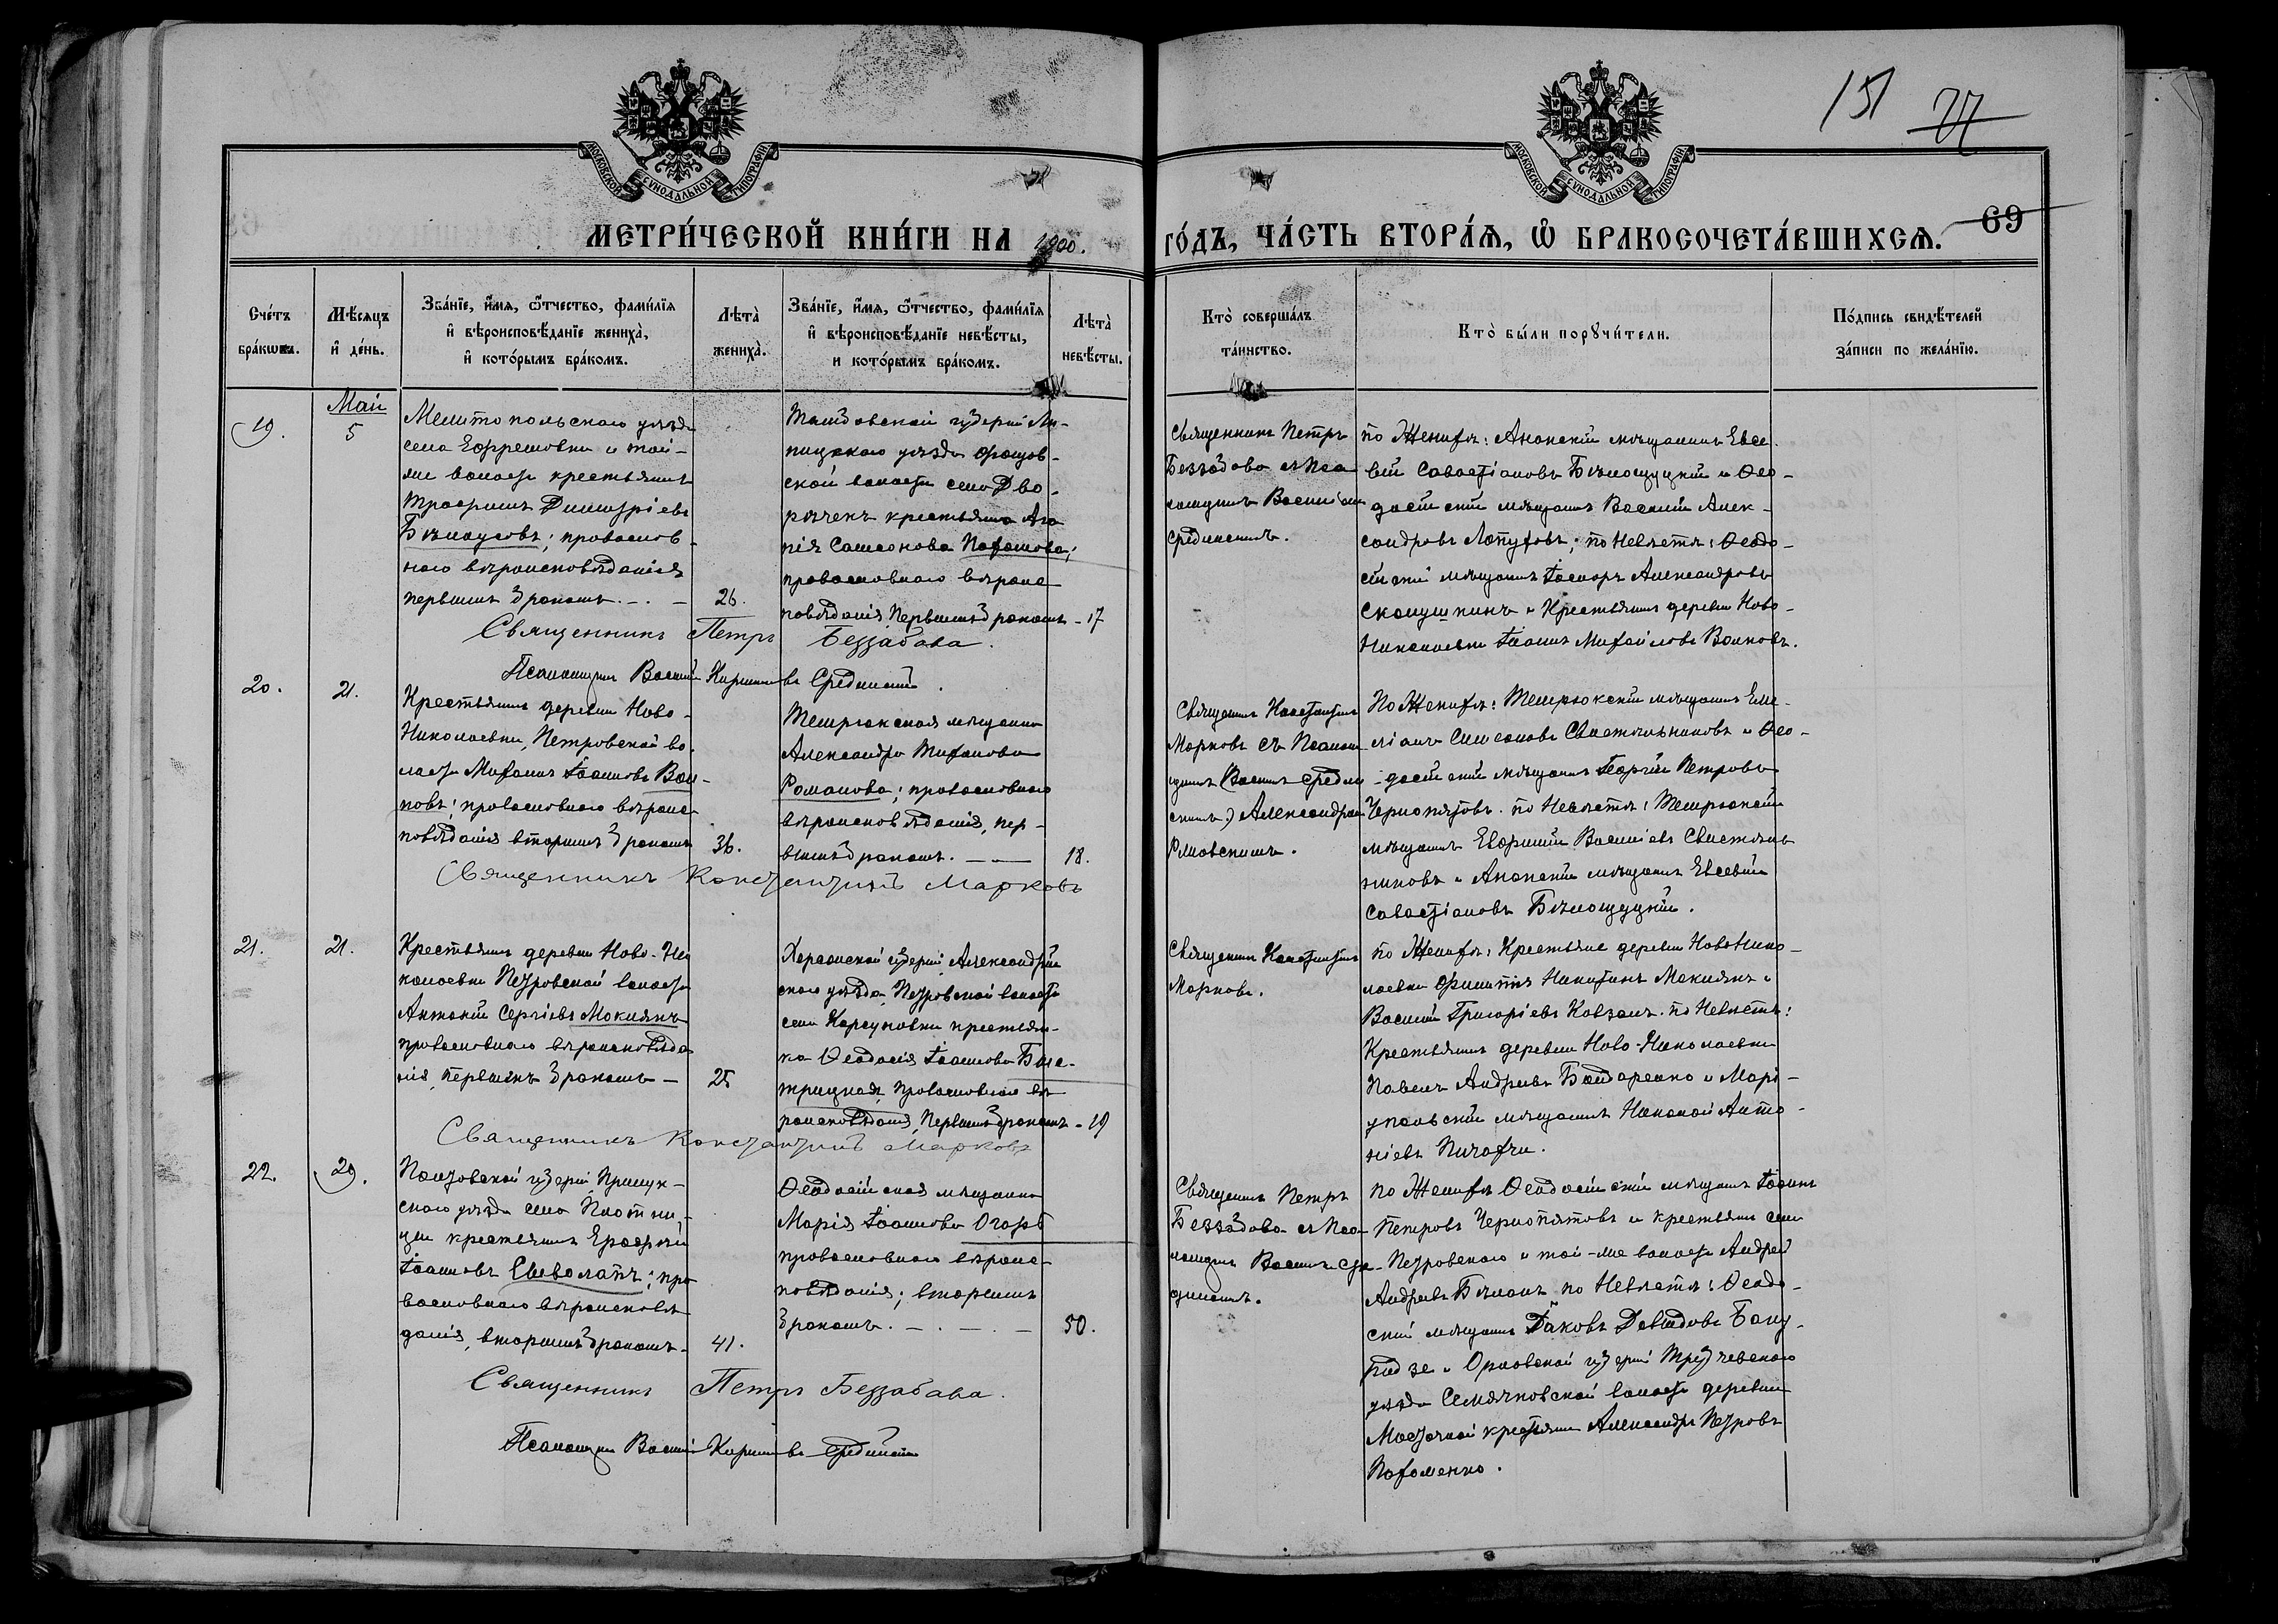 151 77
МОСКОВСКОЙ СѴНОДАЛЬНОЙ ТИПОГРАФІИ
МОСКОВСКОЙ СѴНОДАЛЬНОЙ ТИПОГРАФІИ
МЕТРИ́ЧЕСКОЙ КНИ́ГИ НА 1900.
ГО́ДЪ, ЧА́СТЬ ВТОРА́Ѧ, Ѡ БРАКОСОЧЕТА́ВШИХСѦ. 69
Сче́тъ бра́кωвъ.
Мѣ́сяцъ и де́нь.
Зва́нїе, и́мя, ѻ́тчество, фами́лїя
и вѣроисповѣ́данїе жениха̀,
и кото́рымъ бра́комъ.
Лѣта̀ жениха̀.
Зва́нїе, и́мя, ѻ́тчество, фами́лїя
и вѣроисповѣ́данїе невѣ́сты,
и кото́рымъ бра́комъ.
Лѣта̀ невѣ́сты.
Кто̀ соверша́лъ
та́инство.
Кто̀ бы́ли порꙋчи́тели.
По́дпись свидѣ́телей
за́писи по жела́нїю.
Май
19.
5
Мелитопольскаго уѣзда
села Ефремовки и той-
же волости крестьянинъ
Трофимъ Димитріевъ
Бѣлоусовъ; православ-
наго вѣроисповѣданія
первымъ бракомъ. — . —
26.
Тамбовской губерніи Ли-
пецкаго уѣзда
ской волости села Дво-
рячекъ крестьянка Ага-
пія Самсонова Пахомова;
православнаго вѣроис-
повѣданія, первымъ бракомъ -
17
Священникъ Петръ
Беззабава съ Пса-
ломщикомъ Василіемъ
Срединскимъ.
по Женихѣ: Ананскій мѣщанинъ Евсе-
вій Савастіановъ Бѣлощуцкій и Ѳео-
досійскій мѣщанинъ Василій Алек-
сандровъ Лопуховъ; по Невѣстѣ: Ѳеодо-
сійскій мѣщанинъ Іасиоръ Александровъ
Скопушкинъ и Крестьянинъ деревни Ново-
Николаевки Іоаннъ Михайловъ Волковъ.
Священникъ Петръ Беззабава.
Псаломщикъ Василій Кирилловъ Срединскій.
20.
21.
Крестьянинъ деревни Ново-
Николаевки, Петровской во-
лости Михаилъ Іоанновъ Вол-
ковъ; православнаго вѣроис-
повѣданія вторымъ бракомъ
36.
Темрюкская мѣщанка
Александра Тихонова
Романова; православнаго
вѣроисповѣданія, пер-
вымъ бракомъ. — —
18.
Священникъ Константинъ
Марковъ съ Псалом-
щикомъ (Василіемъ Средин-
скимъ) Александромъ
По Женихѣ: Темрюкскій мѣщанинъ Еме-
ліанъ Симеоновъ Свистельниковъ и Ѳео-
досійскій мѣщанинъ Георгій Петровъ
Чернопятовъ. по Невѣстѣ: Темрюкскій
мѣщанинъ Евфимій Василіевъ Свистель-
никовъ и Ананскій мѣщанинъ Евсевій
Савастіановъ Бѣлощуцкій.
Священникъ Константинъ Марковъ
21.
21.
Крестьянинъ деревни Ново-Ни-
колаевки Петровской волости
Антоній Сергіевъ Мокіянъ
православнаго вѣроисповѣда-
нія, первымъ бракомъ —
25
Херсонской губерніи, Александрій-
скаго уѣзда, Петровской волости
села Карсуновки крестьян-
ка Ѳеодосія Іоаннова Быс-
трицкая, православнаго вѣ-
роисповѣданія, первымъ бракомъ -
19
Священникъ Константинъ
Марковъ.
по Женихѣ: Крестьяне деревни НовоНико-
лаевки Филиппъ Никитинъ Мокіянъ и
Василій Григоріевъ Ковзанъ. по Невѣстѣ:
Крестьянинъ деревни Ново-Николаевки
Павелъ Андреевъ Бондаренко и Марі-
упольскій мѣщанинъ Николай Анто-
ніевъ Пичахчи.
Священникъ Константинъ Марковъ
22.
29.
Полтовской губерніи, Прилук-
скаго уѣзда села Плотни-
цы крестьянинъ Ерофей
Іоанновъ Шеволапъ; пра-
вославнаго вѣроисповѣ-
данія, вторымъ бракомъ -
41.
Ѳеодосійская мѣщанка
Марія Іоаннова Огорь
православнаго вѣроис-
повѣданія; вторымъ
бракомъ. — . — . —
50.
Священникъ Петръ
Беззабава съ Пса-
ломщик. Василіемъ Сре-
динскимъ.
по Женихѣ Ѳеодосійскій мѣщанинъ Іоаннъ
Петровъ Чернопятовъ и крестьянинъ села
Петровскаго и той-же волости Андрей
Андреевъ Бѣланъ по Невѣстѣ: Ѳеодо-
скій мѣщанинъ Іаковъ Давидовъ
и Орловской губерніи Трубчевскаго
уѣзда Семячковской волости деревни
крестьянинъ Александръ Петровъ
Пахоменко.
Священникъ Петръ Беззабава.
Псаломщикъ Василій Кирилловъ Срединскій